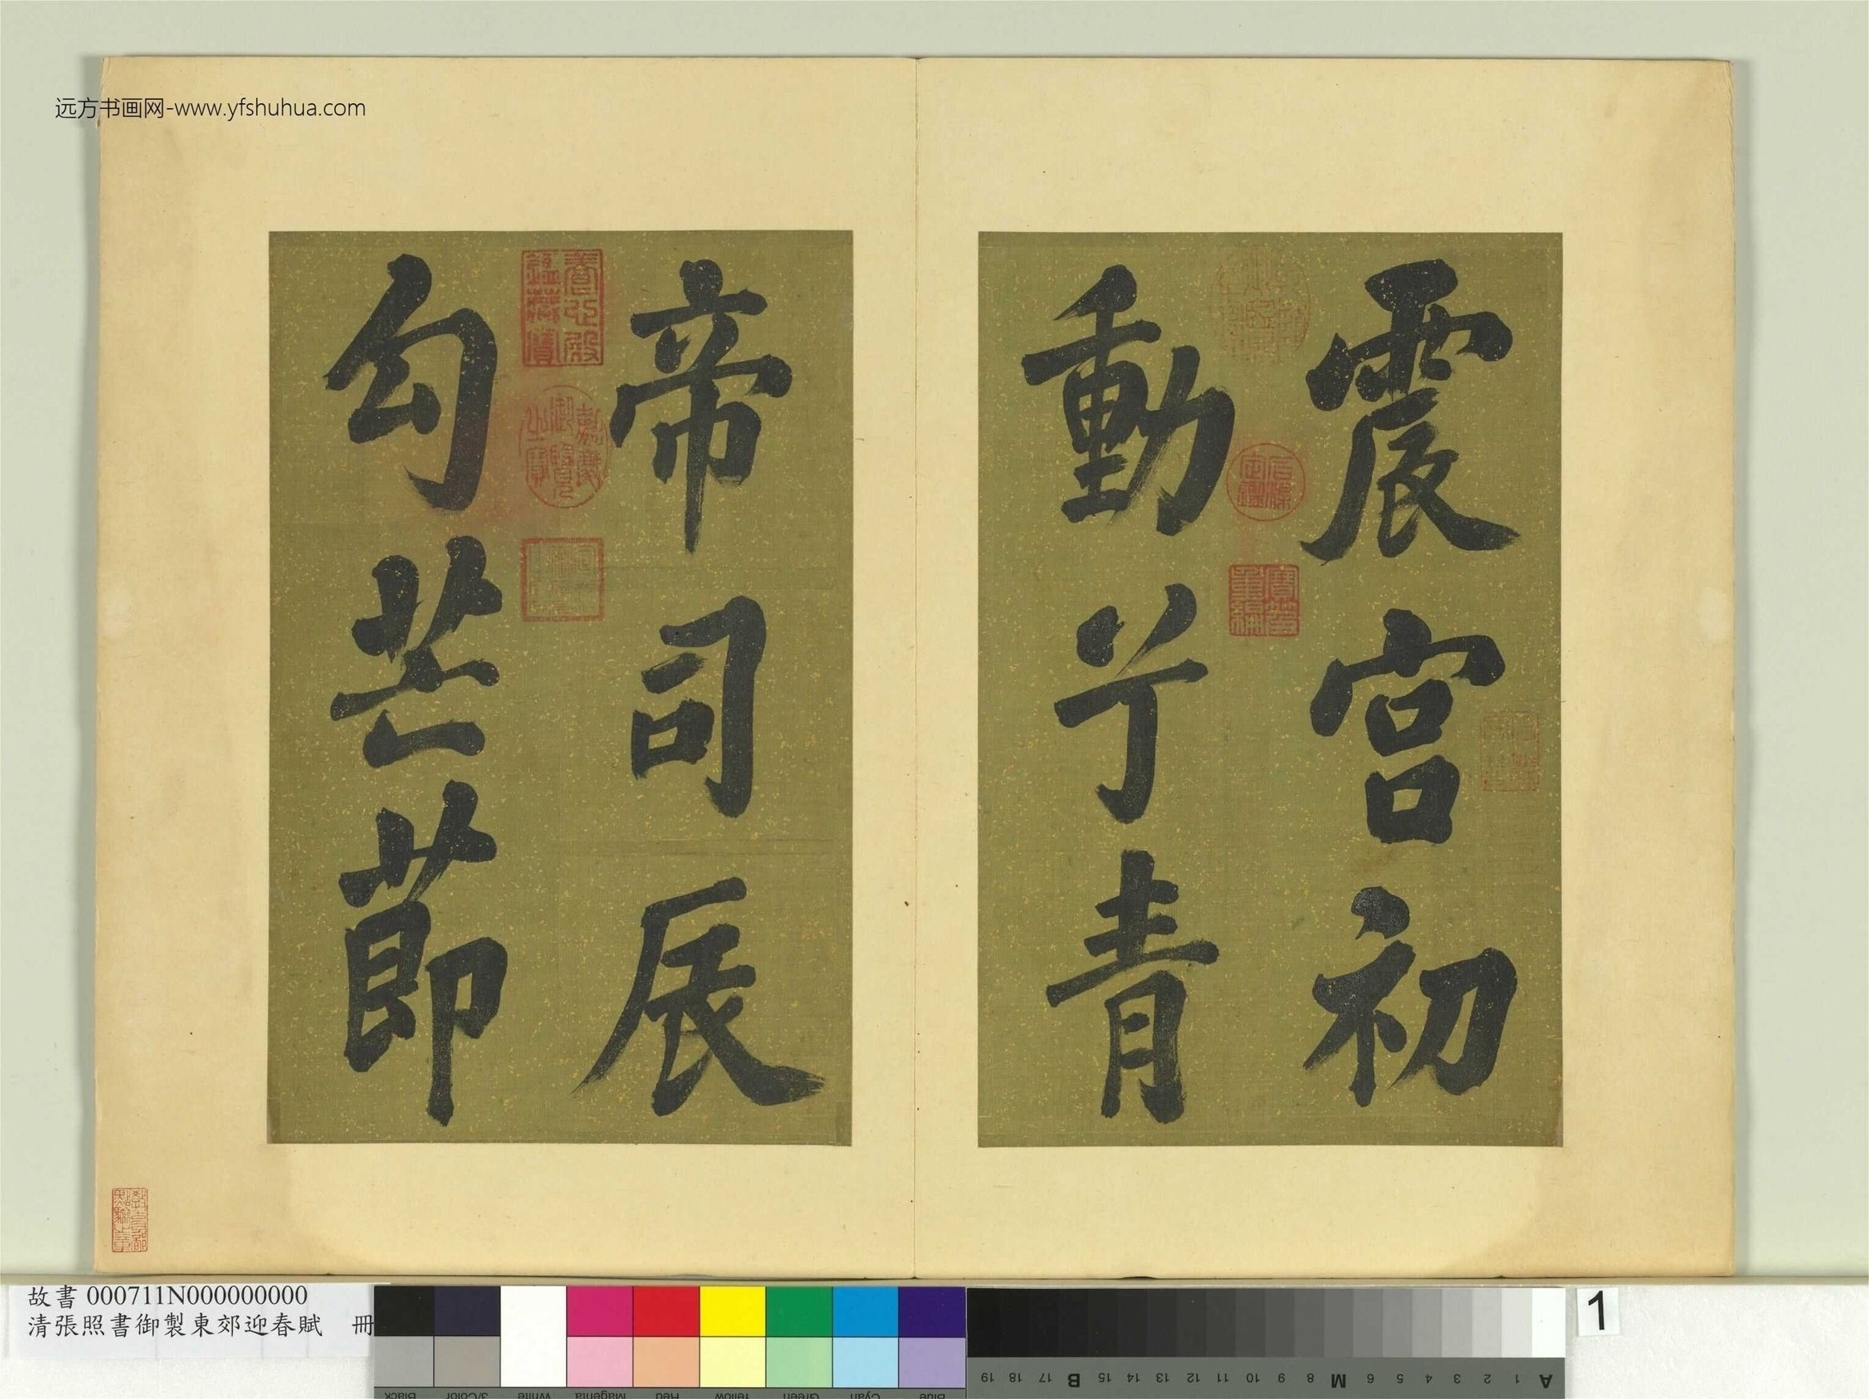 远方书画网-www.yfshuhua.com
震宫初
動兮青
帝司辰
勾芒節
養心殿鑑藏寶
嘉慶御覽之寶
石渠定鑑
寶笈重編
故書 000711N000000000
清張照書御製東郊迎春賦 冊
1
Black 3/Color White Magenta Red Yellow Green Cyan Blue
19 18 17 B 15 14 13 12 11 10 9 8 M 6 5 4 3 2 1 A